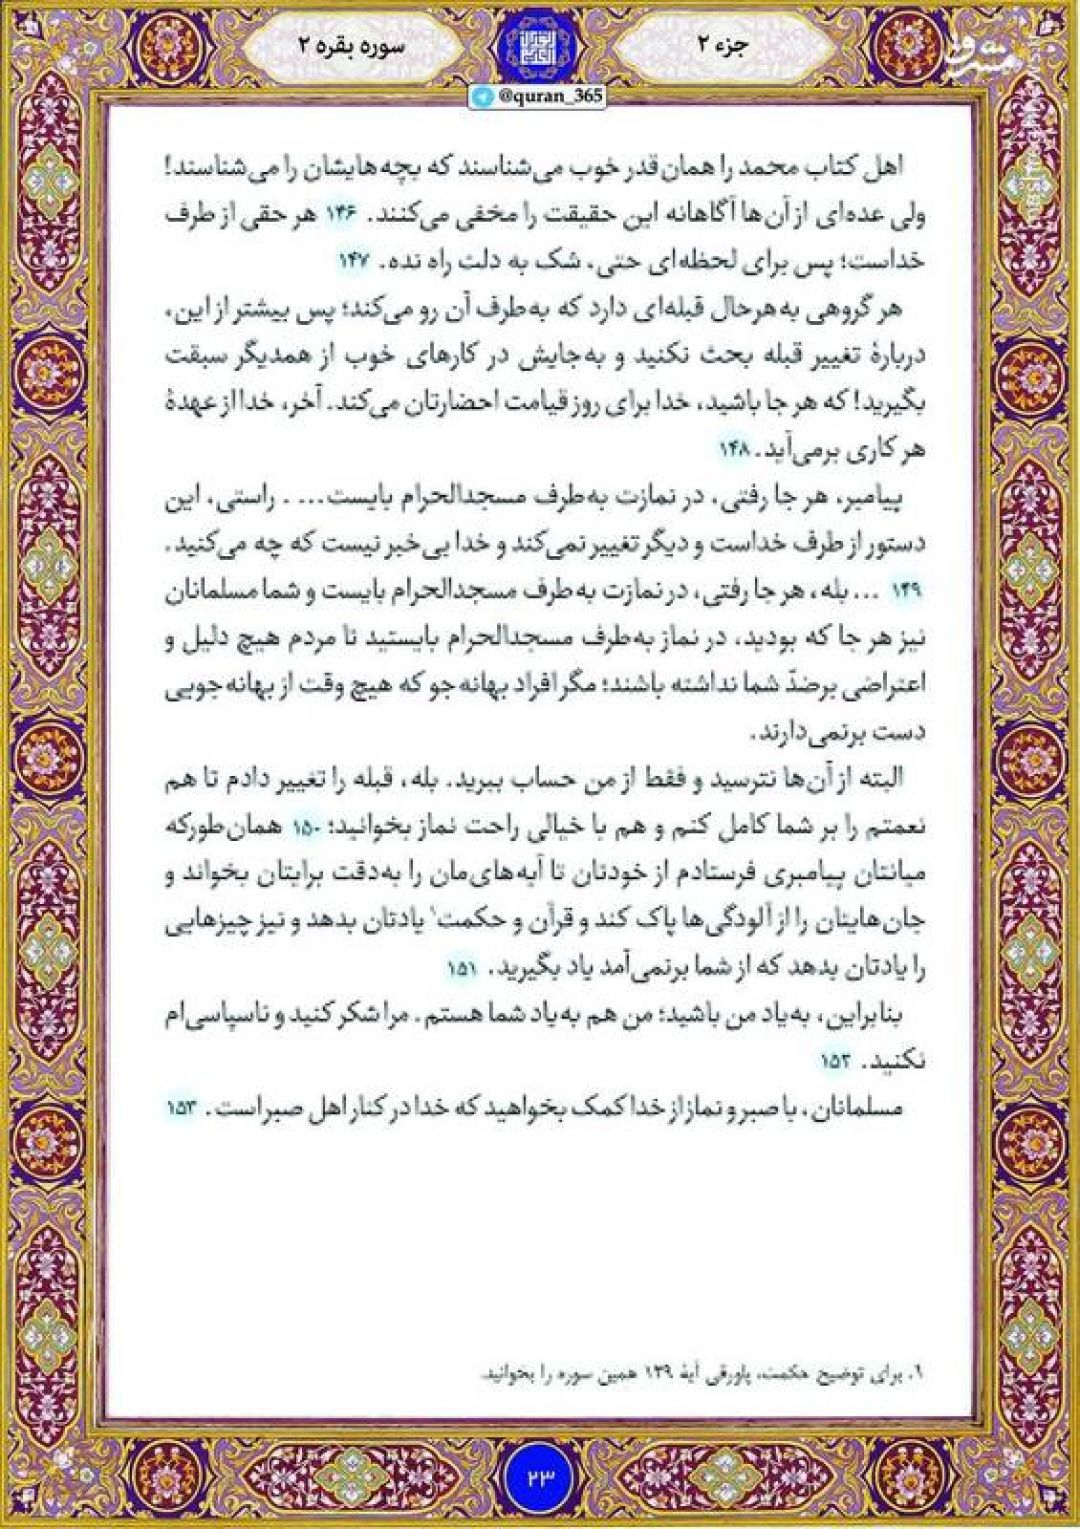 جزء ۲
سوره بقره ۲
@quran_365
مشرق
اهل کتاب محمد را همان قدر خوب می‌شناسند که بچه‌هایشان را می‌شناسند!
ولی عده‌ای از آن‌ها آگاهانه این حقیقت را مخفی می‌کنند. ۱۴۶ هر حقی از طرف
خداست؛ پس برای لحظه‌ای حتی، شک به دلت راه نده. ۱۴۷
هر گروهی به هر حال قبله‌ای دارد که به‌طرف آن رو می‌کند؛ پس بیشتر از این،
دربارهٔ تغییر قبله بحث نکنید و به‌جایش در کارهای خوب از همدیگر سبقت
بگیرید! که هر جا باشید، خدا برای روز قیامت احضارتان می‌کند. آخر، خدا از عهدهٔ
هر کاری برمی‌آید. ۱۴۸
پیامبر، هر جا رفتی، در نمازت به‌طرف مسجدالحرام بایست... . راستی، این
دستور از طرف خداست و دیگر تغییر نمی‌کند و خدا بی‌خبر نیست که چه می‌کنید.
۱۴۹ ... بله، هر جا رفتی، در نمازت به‌طرف مسجدالحرام بایست و شما مسلمانان
نیز هر جا که بودید، در نماز به‌طرف مسجدالحرام بایستید تا مردم هیچ دلیل و
اعتراضی برضدّ شما نداشته باشند؛ مگر افراد بهانه‌جو که هیچ وقت از بهانه‌جویی
دست برنمی‌دارند.
البته از آن‌ها نترسید و فقط از من حساب ببرید. بله، قبله را تغییر دادم تا هم
نعمتم را بر شما کامل کنم و هم با خیالی راحت نماز بخوانید؛ ۱۵۰ همان‌طورکه
میانتان پیامبری فرستادم از خودتان تا آیه‌های‌مان را به‌دقت برایتان بخواند و
جان‌هایتان را از آلودگی‌ها پاک کند و قرآن و حکمت۱ یادتان بدهد و نیز چیزهایی
را یادتان بدهد که از شما برنمی‌آمد یاد بگیرید. ۱۵۱
بنابراین، به‌یاد من باشید؛ من هم به‌یاد شما هستم. مرا شکر کنید و ناسپاسی‌ام
نکنید. ۱۵۲
مسلمانان، با صبر و نماز از خدا کمک بخواهید که خدا در کنار اهل صبر است. ۱۵۳
۱. برای توضیح حکمت، پاورقی آیهٔ ۱۲۹ همین سوره را بخوانید.
۲۳